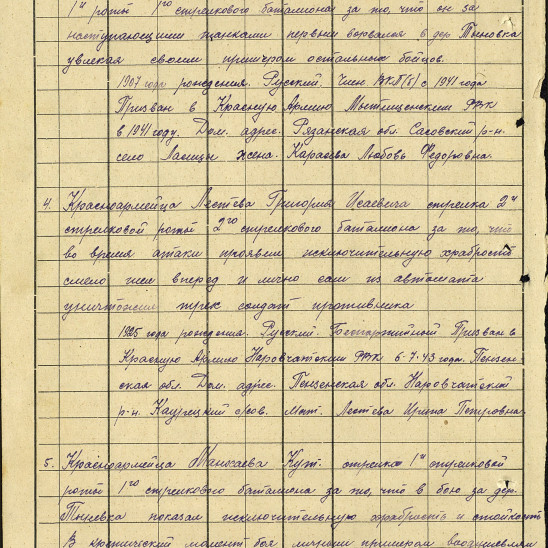 1й роты 1го стрелкового баталиона за то, что он за
наступающими танками первым ворвался в дер. Тыновка
увлекая своим примером остальных бойцов.
1907 года рождения. Русский. Член ВКП(б) с 1941 года
Призван в Красную Армию Мытищенским РВК
в 1941 году. Дом. адрес. Рязанская обл. Сасовский р-н.
село жена. Карасева Любовь Федоровна.
4. Красноармейца Лестева Григория Исаевича стрелка 2й
стрелковой роты 2го стрелкового баталиона за то, что
во время атаки проявил исключительную храбрость
смело шел вперед и лично сам из автомата
уничтожил трех солдат противника
1925 года рождения. Русский. Беспартийный. Призван в
Красную Армию Наровчатским РВК 6.7.43 года. Пензен-
ская обл. Дом. адрес. Пензенская обл. Наровчатский
р-н с/сов. мат. Лестева Ирина Петровна.
5. Красноармейца Кут. стрелка 1й стрелковой
роты 1го стрелкового баталиона за то, что в бою за дер.
показал исключительную храбрость и стойкость
В критический момент боя личным примером воодушевлял